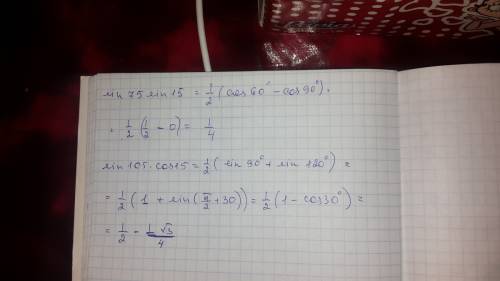 sin 75 sin 15 = 1/2 (cos 60° - cos 90°) =
= 1/2 (1/2 - 0) = 1/4
sin 105 · cos 15 = 1/2 ( sin 90° + sin 120° ) =
= 1/2 ( 1 + sin(π/2 + 30)) = 1/2 (1 - cos 30°) =
= 1/2 - 1√3/4